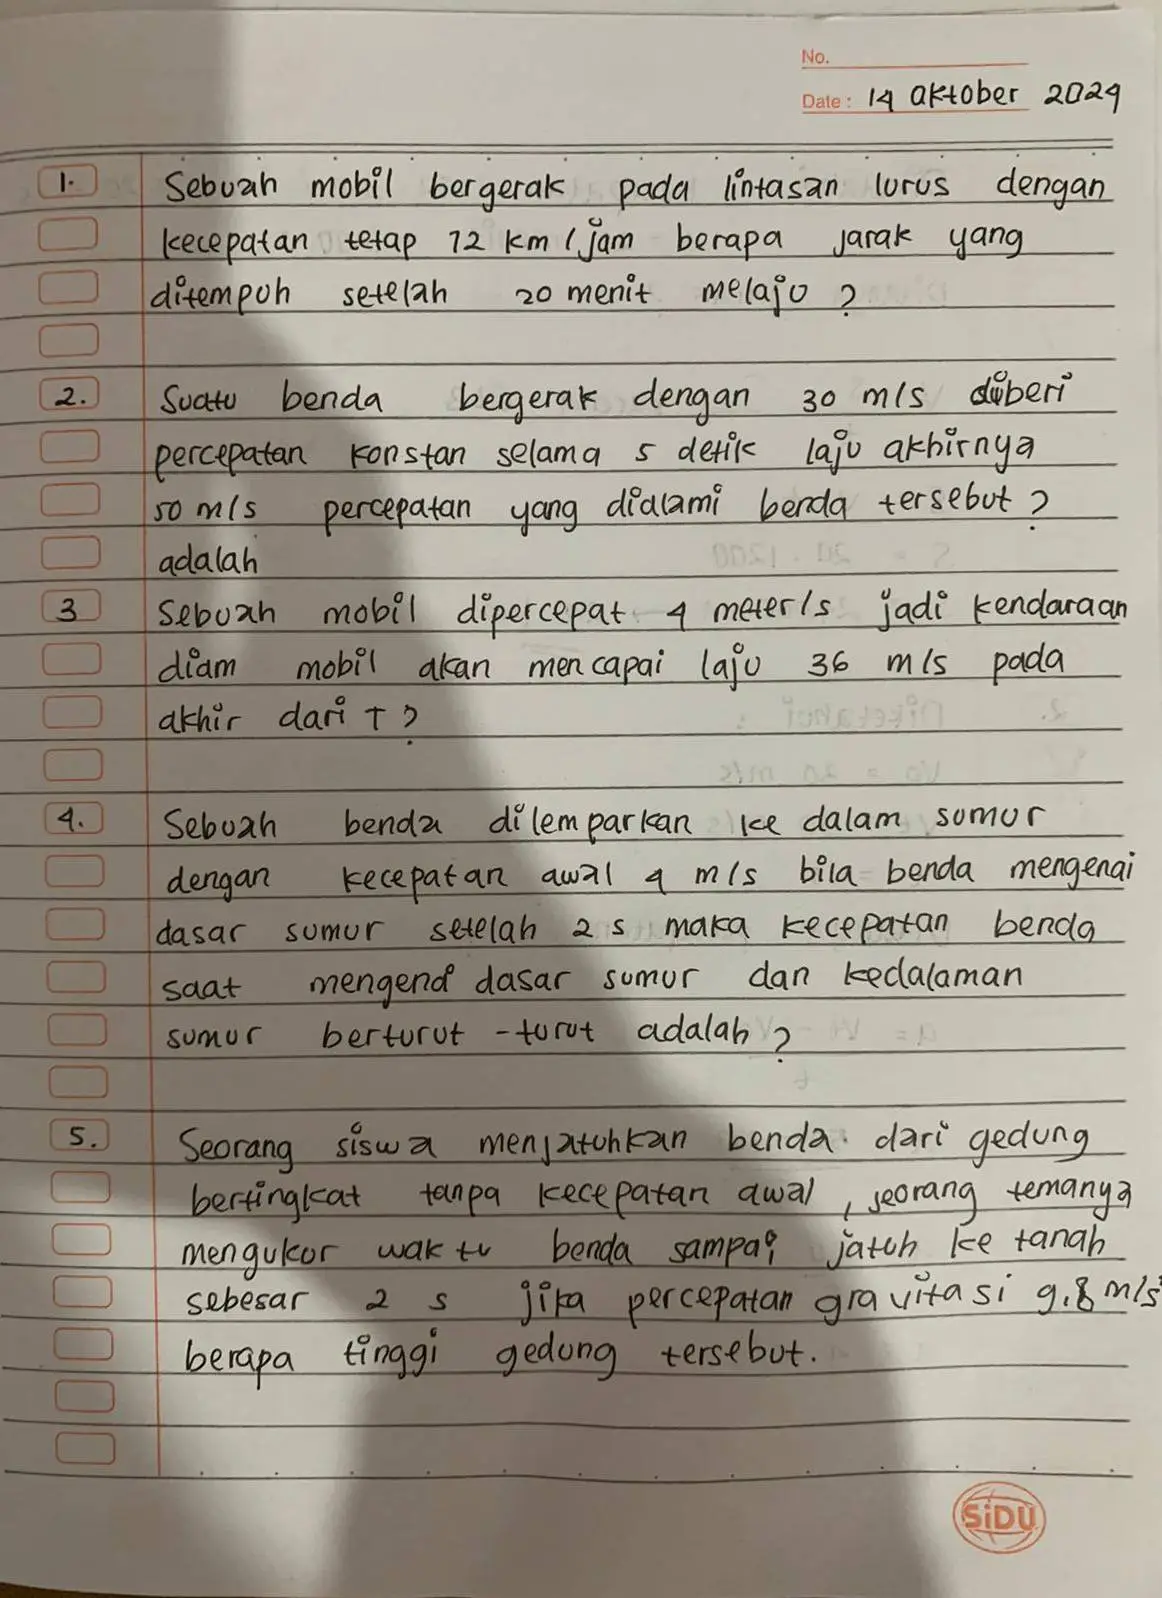 No.
Date : 14 aktober 2024
1. Sebuah mobil bergerak pada lintasan lurus dengan
kecepatan tetap 72 km / jam berapa jarak yang
ditempuh setelah 20 menit melaju ?
2. Suatu benda bergerak dengan 30 m/s diberi
percepatan konstan selama 5 detik laju akhirnya
50 m/s percepatan yang dialami benda tersebut ?
adalah
3 Sebuah mobil dipercepat 4 meter/s jadi kendaraan
diam mobil akan mencapai laju 36 m/s pada
akhir dari t ?
4. Sebuah benda dilemparkan ke dalam sumur
dengan kecepatan awal 4 m/s bila benda mengenai
dasar sumur setelah 2 s maka kecepatan benda
saat mengenai dasar sumur dan kedalaman
sumur berturut - turut adalah ?
5. Seorang siswa menjatuhkan benda dari gedung
bertingkat tanpa kecepatan awal , seorang temanya
mengukur waktu benda sampai jatuh ke tanah
sebesar 2 s jika percepatan gravitasi 9.8 m/s²
berapa tinggi gedung tersebut.
SiDU